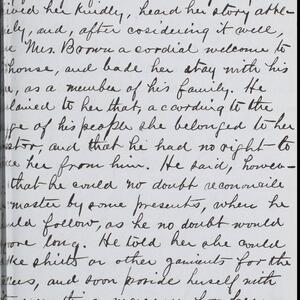 her kindly, heard her story atten-
and, after cosidering it well,
Mrs. Brown a cordial welcome to
house, and bade her stay with his
as a member of his family. He
to her that, according to the
of his people she belonged to her
and that he had no right to
her from him. He said, howev-
that he could no doubt reconcile
master by some presents, when he
follow, as he no doubt would
long. He told her she could
shirts or other garments for the
and soon provide herself with